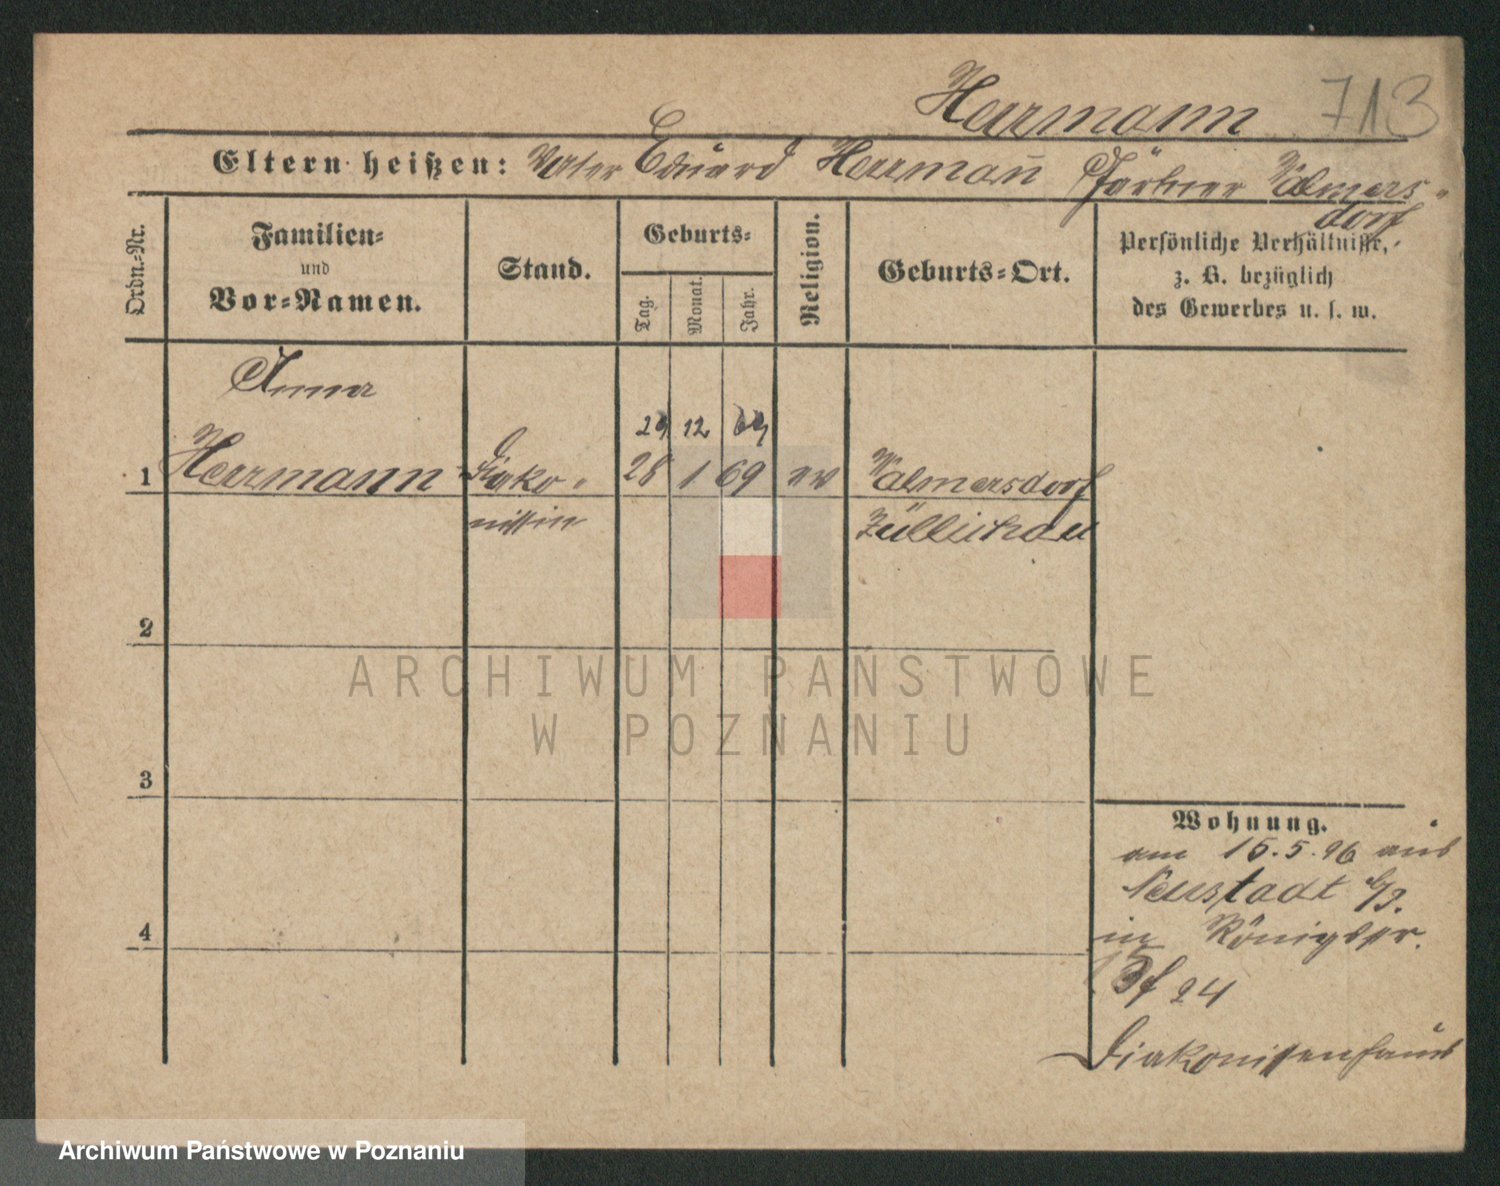 Herrmann 713
Eltern heißen: Vater Eduard Herrmann Färber Walmers-
dorf
Ordn.-Nr.
Familien-
und
Vor-Namen.
Stand.
Geburts-
Tag.
Monat.
Jahr.
Religion.
Geburts-Ort.
Persönliche Verhältnisse,
z. B. bezüglich
des Gewerbes u. s. w.
Anna
29 12 69
1 Herrmann Diako- 28 1 69 ev Walmersdorf
nissin Züllichau
2
3
4
Wohnung.
am 15.5.96 aus
Neustadt b/P.
in Königstr.
24
Diakonissenhaus
ARCHIWUM PAŃSTWOWE
W POZNANIU
Archiwum Państwowe w Poznaniu